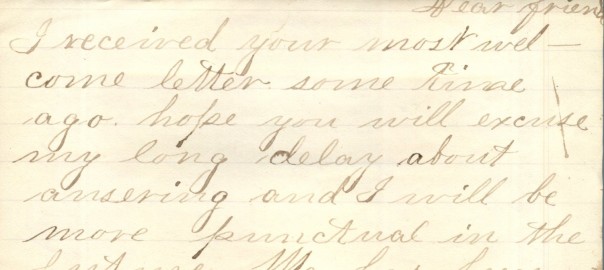 Dear friend
I received your most wel-
come letter some time
ago. hope you will excuse
my long delay about
ansering and I will be
more punctual in the